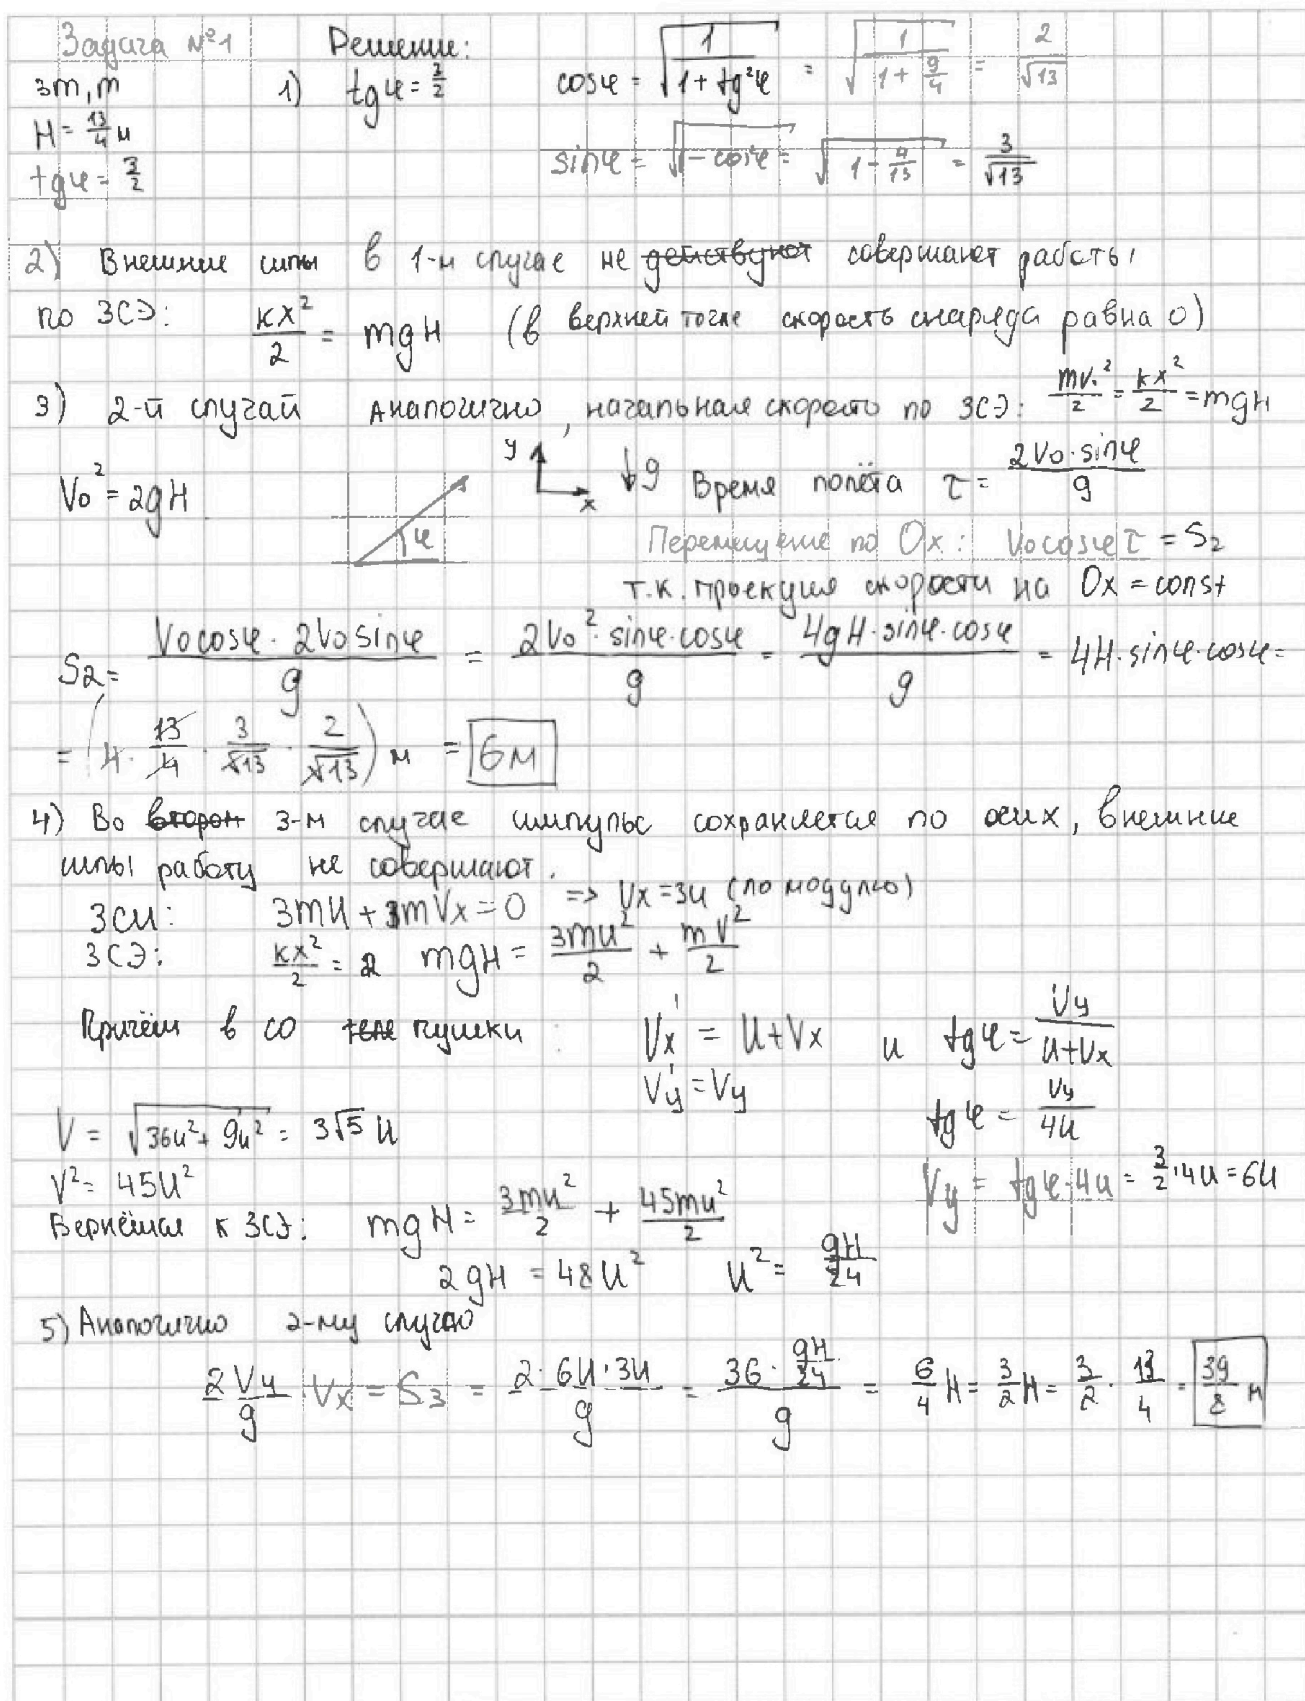 Задача №1 Решение:
3m, m
H = 13/4 м
tgφ = 3/2
1) tgφ = 3/2 cosφ = √(1/(1 + tg²φ)) = √(1/(1 + 9/4)) = 2/√13
sinφ = √(1 - cos²φ) = √(1 - 4/13) = 3/√13
2) Внешние силы в 1-м случае не действуют совершают работы,
по ЗСЭ: kx²/2 = mgH (в верхней точке скорость снаряда равна 0)
3) 2-й случай Аналогично, начальная скорость по ЗСЭ: mv₀²/2 = kx²/2 = mgH
V₀² = 2gH φ y x ↓g Время полёта τ = 2V₀·sinφ/g
Перемещение по Ox: V₀cosφτ = S₂
т.к. проекция скорости на Ox = const
S₂ = V₀cosφ · 2V₀sinφ/g = 2V₀²·sinφ·cosφ/g = 4gH·sinφ·cosφ/g = 4H·sinφ·cosφ =
= (4 · 13/4 · 3/√13 · 2/√13) м = 6м
4) Во втором 3-м случае импульс сохраняется по оси x, внешние
силы работу не совершают.
ЗСИ: 3mU + mVx = 0 => Vx = 3U (по модулю)
ЗСЭ: kx²/2 = mgH = 3mu²/2 + mV²/2
Причём в СО теле пушки: Vx' = U + Vx и tgφ = Vy/(U+Vx)
Vy' = Vy
tgφ = Vy/4U
V = √(36u² + 9u²) = 3√5 U
V² = 45U²
Vy = tgφ·4u = 3/2·4U = 6U
Вернёмся к ЗСЭ: mgH = 3mu²/2 + 45mu²/2
2gH = 48U² U² = gH/24
5) Аналогично 2-му случаю
2Vy/g Vx = S₃ = 2·6U·3U/g = 36·gH/24/g = 6/4 H = 3/2 H = 3/2 · 13/4 = 39/8 м